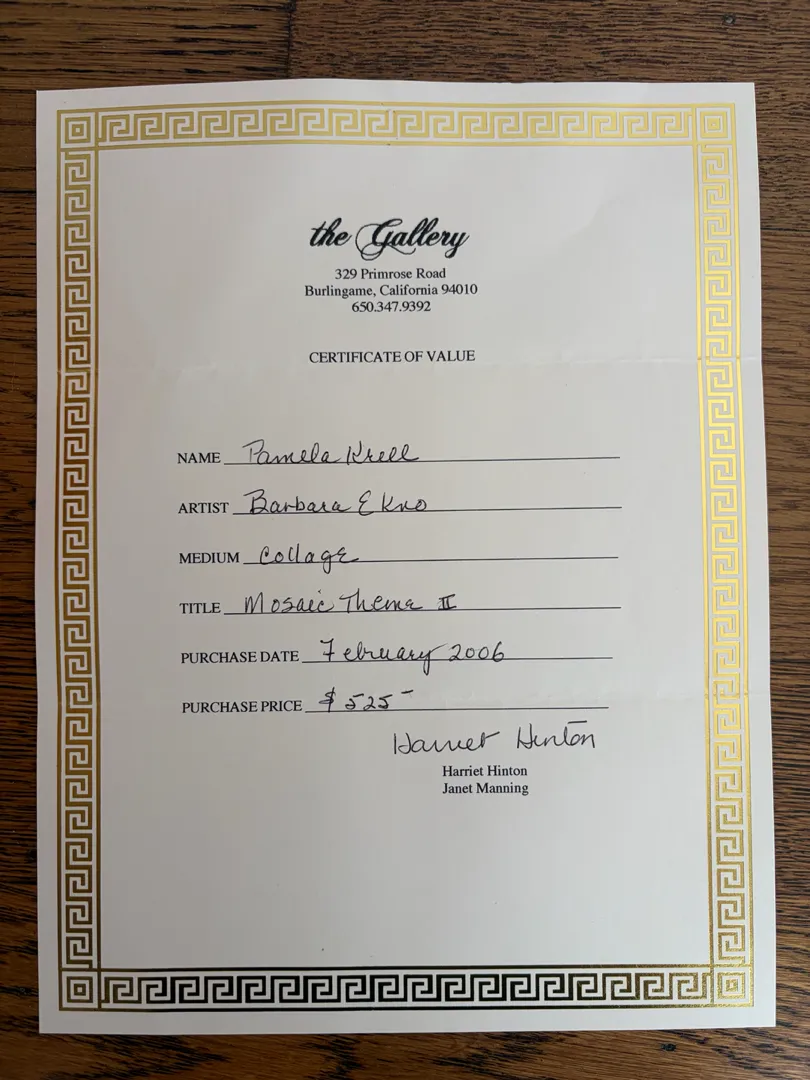 the Gallery
329 Primrose Road
Burlingame, California 94010
650.347.9392
CERTIFICATE OF VALUE
NAME Pamela Krell
ARTIST Barbara E Kno
MEDIUM Collage
TITLE Mosaic Theme II
PURCHASE DATE February 2006
PURCHASE PRICE $525-
Harriet Hinton
Harriet Hinton
Janet Manning